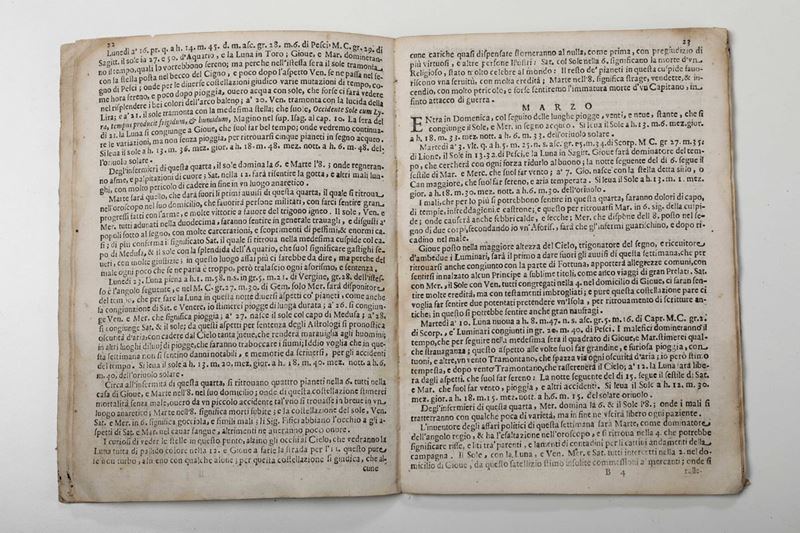 22
Lunedì a' 16. pr. q. a h. 14. m. 45. d. m. asc. gr. 28. m. 6. di Pesci; M. C. gr. 29. di
Sagitt. il sole in 27. e 50. d'Aquario, e la Luna in Toro; Gioue, e Mar. domineran-
no il tempo, quali lo vorrebbono sereno; ma perche nell'istessa sera il sole tramonta
con la stella posta nel becco del Cigno, e poco dopo l'aspetto Ven. se ne passa nel se-
gno di Pesci; onde per le diuerse costellationi giudico varie mutationi di tempo, co-
me hora sereno, e poco dopo pioggia, ouero acqua con sole, che forse ci farà vedere
nel risplendere i bei colori dell'arco baleno; a' 20. Ven. tramonta con la lucida della
Lira; e a' 21. il sole tramonta con la medesima stella; che suole, Occidente Sole cum Ly-
ra, tempus producit frigidum, & humidum, Magino nel sup. Isag. al cap. 10. La sera del
di 21. la Luna si congiunge a Gioue, che suol far bel tempo; onde vedremo continua-
te le variationi, ma non senza pioggia, per ritrouarsi cinque pianeti in segno acqueo.
Si leua il sole a h. 13. m. 36. mez. gior. a h. 18. m. 48. mez. nott. a h. 6. m. 48. del-
l'oriuolo solare.
Degl'infermi di questa quarta, il sole domina la 6. e Marte l'8. ; onde regneran-
no asme, e palpitationi di cuore; Sat. nella 12. farà risentire la gotta, e altri mali lun-
ghi, con molto pericolo di cadere in fine in vn luogo anaretico.
Marte sarà quello, che darà fuori i primi auuisi di questa quarta, il quale si ritroua
nell'oroscopo nel suo domicilio, che fauorirà persone militari, con farci sentire gran
progressi fatti con l'arme, e molte vittorie a fauore del trigono igneo. Il sole, Ven. e
Mer. tutti adunati nella duodecima, saranno sentire in generale trauagli, e disgusti a'
popoli sotto al segno, con molte carcerationi, e scoprimenti di pessimi, & enormi ca-
si; di più conferma i significato Sat. il quale si ritroua nella medesima cuspide col ca-
po di Medusa, & il sole con la splendida dell'Aquario, che suol significare gastighi se-
ueri, con molte giustizie; in questo luogo assai più ci sarebbe da dire, ma perche del
male ogni poco che se ne parla è troppo, però tralascio ogni aforismo, e sentenza.
Lunedì 23. Luna piena a h. 1. m. 58. n. s. in gr. 5. m. 21. di Vergine, gr. 28. dell'istes-
so è l'angolo seguente, e nel M. C. gr. 27. m. 30. di Gem. solo Mer. sarà dispositore
del tempo, che per fare la Luna in questa notte diuersi aspetti co' pianeti, come anche
la congiunzione di Sat. e Venere, io stimerei piogge di lunga durata; a' 26. si congiun-
ge Ven. e Mer. che significa pioggia; a' 27. nasce il sole col capo di Medusa; a' 28.
si congiunge Sat. & il sole; da questi aspetti per sentenza degli Astrologi si pronostica
oscurità d'aria, con cadere dal Cielo tanta gente, che rendera marauiglia agli huomini;
in altri luoghi diluuj di piogge, che faranno traboccare i fiumi; Iddio voglia che in que-
sta settimana non si sentino danni notabili, e memorie da scriuersi, per gli accidenti
del tempo. Si leua il sole a h. 13. m. 20. mez. gior. a h. 18. m. 40. mez. nott. a h. 6.
m. 40. dell'oriuolo solare.
Circa all'infermità di questa quarta, si ritrouano quattro pianeti nella 6. tutti nella
casa di Gioue, e Marte nell'8. nel suo domicilio; onde di questa costellatione stimerei
mortalità senza male, ouero da vn piccolo accidente tal vno si trouasse in breue in vn
luogo anaretico; Marte nell'8. significa morti subite; e la costellatione del sole, Ven.
Sat. e Mer. in 6. significa gocciola, e simili mali; li Sig. Fisici abbiano l'occhio a gli a-
spetti di Sat. e Mar. nel cauar sangue, altrimenti ne aueranno poco onore.
I curiosi di vedre le stelle in questo punto, alzino gli occhi al Cielo, che vedranno la
Luna tutta di pallido colore nella 12. e Gioue a farle la strada per l'11. questo pure
le non turbo, almeno con qualche alone; per questa costellatione si giudica, che al-
cune
23
cune cariche quasi dispensate storneranno al nulla, come prima, con pregiudizio di
più virtuosi, e altre persone Illustri: Sat. col Sole nella 6. significano la morte d'vn
Religioso, stato molto celebre al mondo: Il resto de' pianeti in questa cuspide fauo-
riscono vna seruitù, con molta eredità; Marte nell'8. significa strage, vendette, & in-
cendio, con molto pericolo, e forse sentiremo l'immatura morte d'vn Capitano, in
finto attacco di guerra.
MARZO
ENtra in Domenica, col seguito delle lunghe piogge, venti, e neue, stante, che si
congiunge il Sole, e Mer. in segno acqueo. Si leua il Sole a h. 13. m. 6. mez. gior.
a h. 18. m. 33. mez. nott. a h. 6. m. 33. dell'oriuolo solare.
Martedì a' 3. vlt. q. a h. 5. m. 25. n. s. asc. gr. 25. m. 34. di Scorp. M. C. gr 27. m. 35
di Lione, il Sole in 13.32. di Pesci, e la Luna in Sagitt. Gioue sarà dominatore del tem-
po, che cercherà con ogni forza ridurlo al buono; la notte seguente del di 6. segue il
sestile di Mar. e Merc. che suol far vento; a' 7. Gio. nasce con la stella detta sirio, o
Can maggiore, che suol far sereno, e aria temperata. Si leua il Sole a h. 13. m. 1. mez.
gior. a h. 18. m. 30. mez. nott. a h. 6. m. 30. dell'oriuolo.
I mali, che per lo più si potrebbono sentire in questa quarta, saranno dolori di capo,
di tempie, infreddagioni, e caltrone; e questo per ritrouarsi Mar. in 6. sig. della cuspi-
de; onde causerà anche febbri calde, e secche; Mer. che dispone dell'8. posto nel se-
gno di due corpi, secondando io vn'Aforis. sarà che gl'infermi guarischino, e dopo ri-
cadino nel male.
Gioue posto nella maggiore altezza del Cielo, trigonatore del segno, e riceuitore
d'ambedue i Luminari, sarà il primo a dare fuori gli auuisi di questa settimana, che per
ritrouarsi anche congiunto con la parte di Fortuna, apporterà allegrezze comuni, con
sentirsi innalzato alcun Principe a sublime titoli, come anco viaggi di gran Prelati. Sat.
con Mer. il Sole con Ven. tutti congregati nella 4. nel domicilio di Gioue, ci faran sen-
tire molte eredità, ma con testamenti imbrogliati; e pure questa costellazione pare ci
voglia far sentire due potentati pretendere vn'Isola, per ritrouamento di scritture an-
tiche; in questo si potrebbe sentire anche gran naufragi.
Martedì a' 10. Luna nuoua a h. 8. m. 47. n. s. asc. gr. 5. m. 16. di Capr. M. C. gr. 2.
di Scorp. e' Luminari congiunti in gr. 20. m. 40. di Pesci. I malefici domineranno il
tempo, che per seguire nella medesima sera il quadrato di Gioue; e Mar. stimerei qual-
che strauaganza; questo aspetto alle volte suol far grandine, e furiosa pioggia, con
tuoni, e altre, vn vento Tramontano, che spazza via ogni oscurità d'aria; io però stimo
tempesta, e dopo vento Tramontano, che rasserenerà il Cielo; a' 12. la Luna sarà libe-
ra dagli aspetti, che suol far sereno: La notte seguente del di 15. segue il sestile di Sat.
e Mar. che suol far vento, e pioggia, e altri accidenti. Si leua il Sole a h. 12. m. 30.
mez. gior. a h. 18. m. 15. mez. nott. a h. 6. m. 15. del solare oriuolo.
Degl'infermi di questa quarta, Mer. domina la 6. & il Sole l'8. ; onde i mali si
tratterranno con qualche poca di varietà, ma in fine ne vscirà libero ogni paziente.
L'inuentore degli affari politici di questa settimana sarà Marte, come dominatore
dell'angolo regio, & ha l'esaltazione nell'oroscopo, e si ritroua nella 4. che potrebbe
significare risse, e liti tra' parenti, e lamenti di contadini per li cattiui andamenti della
campagna. Il Sole, con la Luna, e Ven. Mer. e Sat. tutti interclusi nella 2. nel do-
micilio di Gioue, da questo satellizio stimo insolite commessioni a' mercanti; onde si
B 4